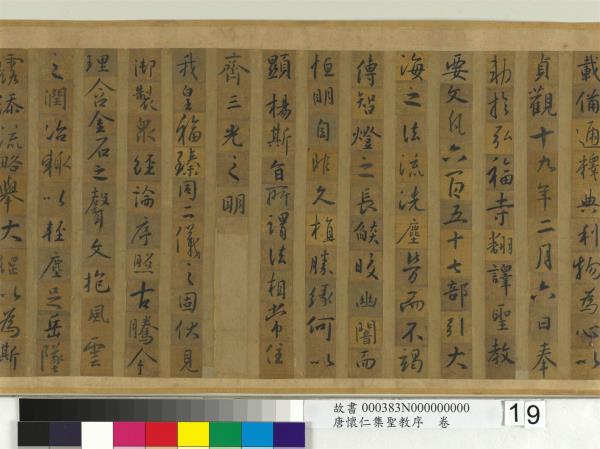 載備通釋典利物為心以
貞觀十九年二月六日奉
勅於弘福寺翻譯聖教
要文凡六百五十七部引大
海之法流洗塵勞而不竭
傳智燈之長焰皎幽闇而
恒明自非久植勝緣何以
顯揚斯旨所謂法相常住
齊三光之明
我皇福臻同二儀之固伏見
御製眾經論序照古騰今
理含金石之聲文抱風雲
之潤治輒以輕塵足岳墜
露添流略舉大綱以為斯
故書 000383N000000000
唐懷仁集聖教序 卷
19